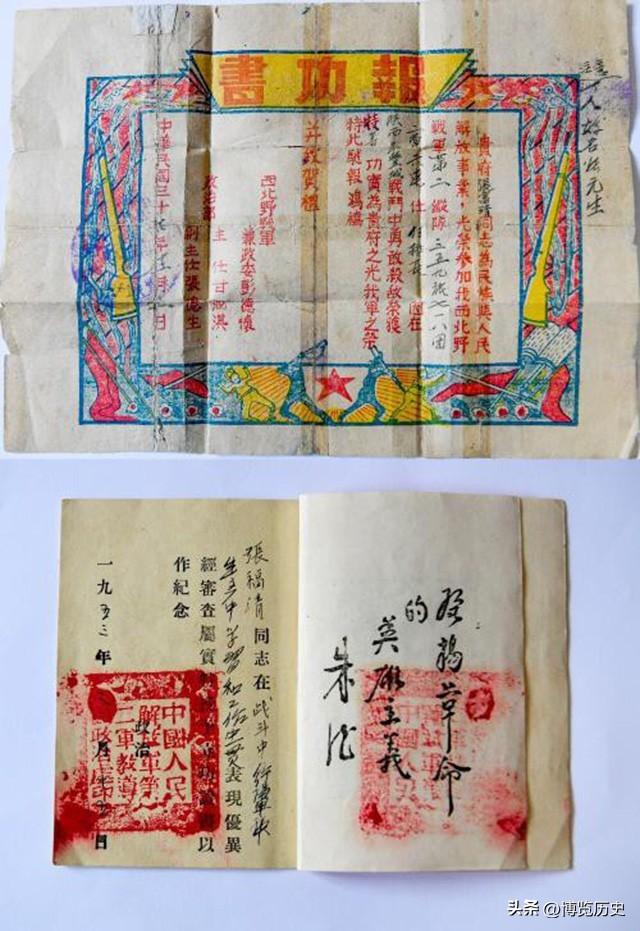 報功書
貴府張富清同志為民族與人民
解放事業,光榮參加我西北野
戰軍第二縱隊三五九旅七一八團
任 因在
陝西永豐城戰鬥中勇敢殺敵榮獲
特等 功實為貴府之光我軍之榮
特此馳報鴻禧
并致賀禮
西北野戰軍
兼政委彭德懷
政治部
主任甘泗淇
副主任張德生
中華民國三十七年 月 日
發揚革命
的
英雄主義
朱德
張福清同志在战斗中行軍中
生产中学習和工作中 表現優異
經審查屬實 以
作紀念
政治
一九五三年 月 日
中國人民
解放軍第
二軍教導
头条 @博览历史